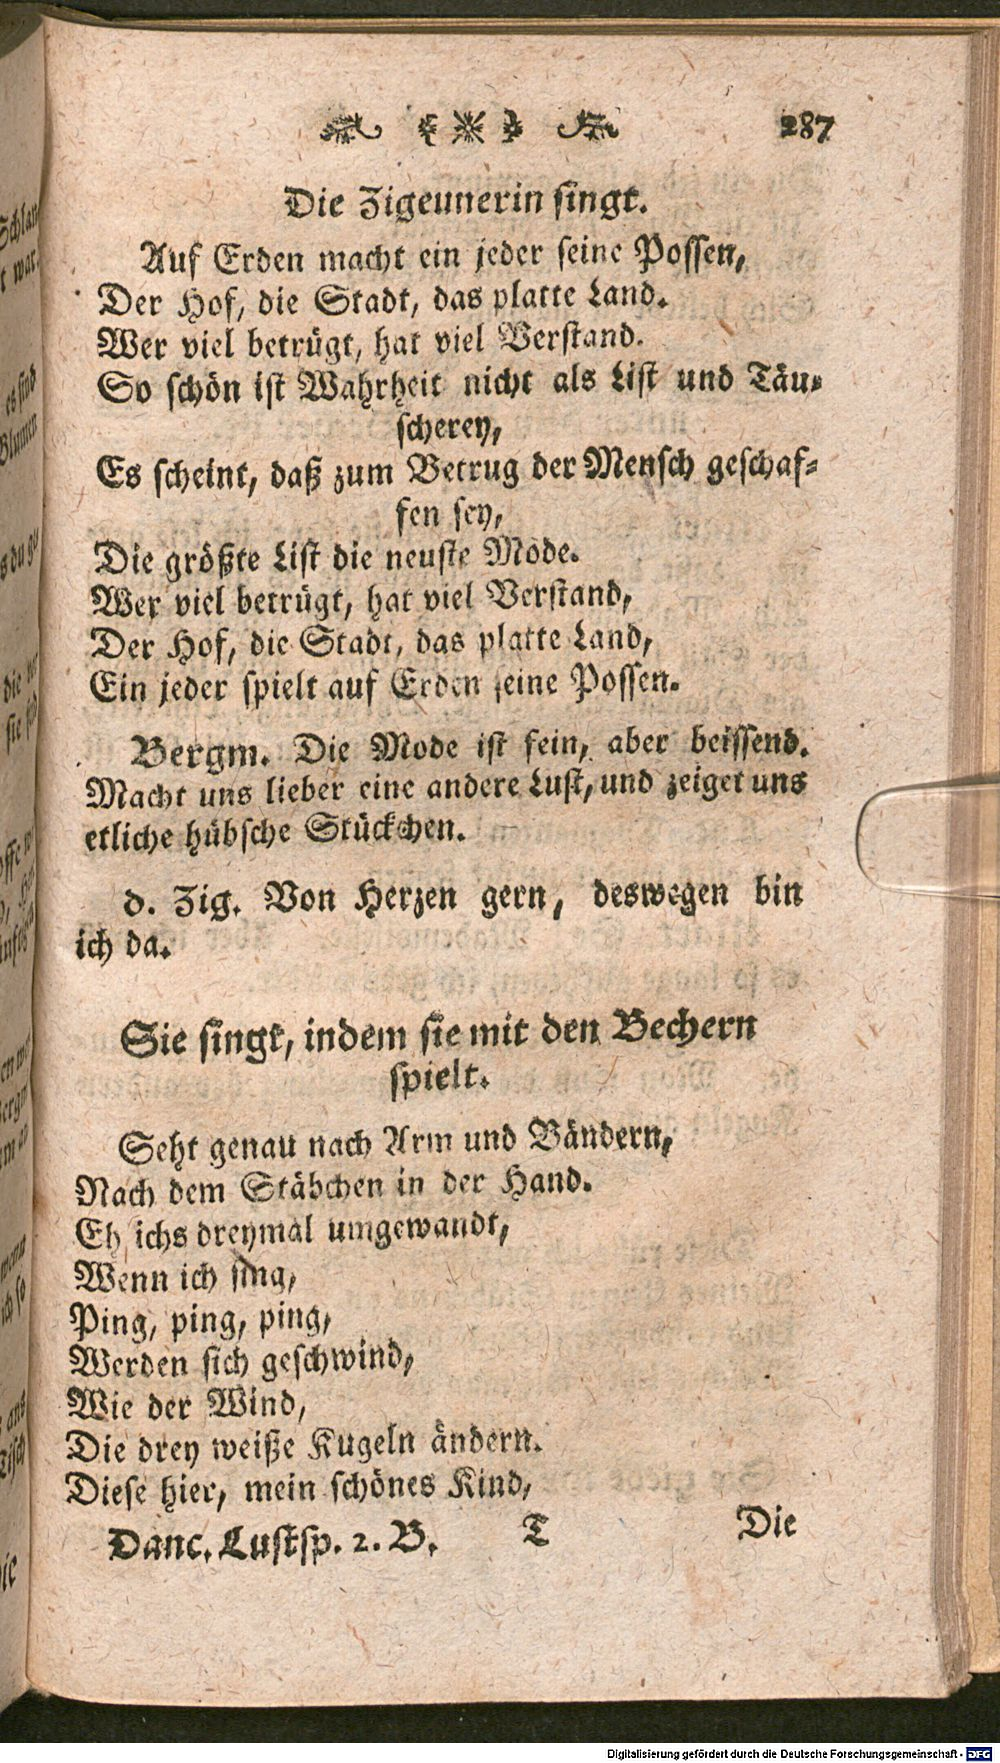 287
Die Zigeunerin singt.
Auf Erden macht ein jeder seine Possen,
Der Hof, die Stadt, das platte Land.
Wer viel betrügt, hat viel Verstand.
So schön ist Wahrheit nicht als List und Täu-
scherey,
Es scheint, daß zum Betrug der Mensch geschaf-
fen sey,
Die größte List die neuste Mode.
Wer viel betrügt, hat viel Verstand,
Der Hof, die Stadt, das platte Land,
Ein jeder spielt auf Erden seine Possen.
Bergm. Die Mode ist fein, aber beissend.
Macht uns lieber eine andere Lust, und zeiget uns
etliche hübsche Stückchen.
d. Zig. Von Herzen gern, deswegen bin
ich da.
Sie singt, indem sie mit den Bechern
spielt.
Seht genau nach Arm und Bändern,
Nach dem Stäbchen in der Hand.
Eh ichs dreymal umgewandt,
Wenn ich sing,
Ping, ping, ping,
Werden sich geschwind,
Wie der Wind,
Die drey weiße Kugeln ändern.
Diese hier, mein schönes Kind,
Danc. Lustsp. 2. B. T Die
Digitalisierung gefördert durch die Deutsche Forschungsgemeinschaft - DFG